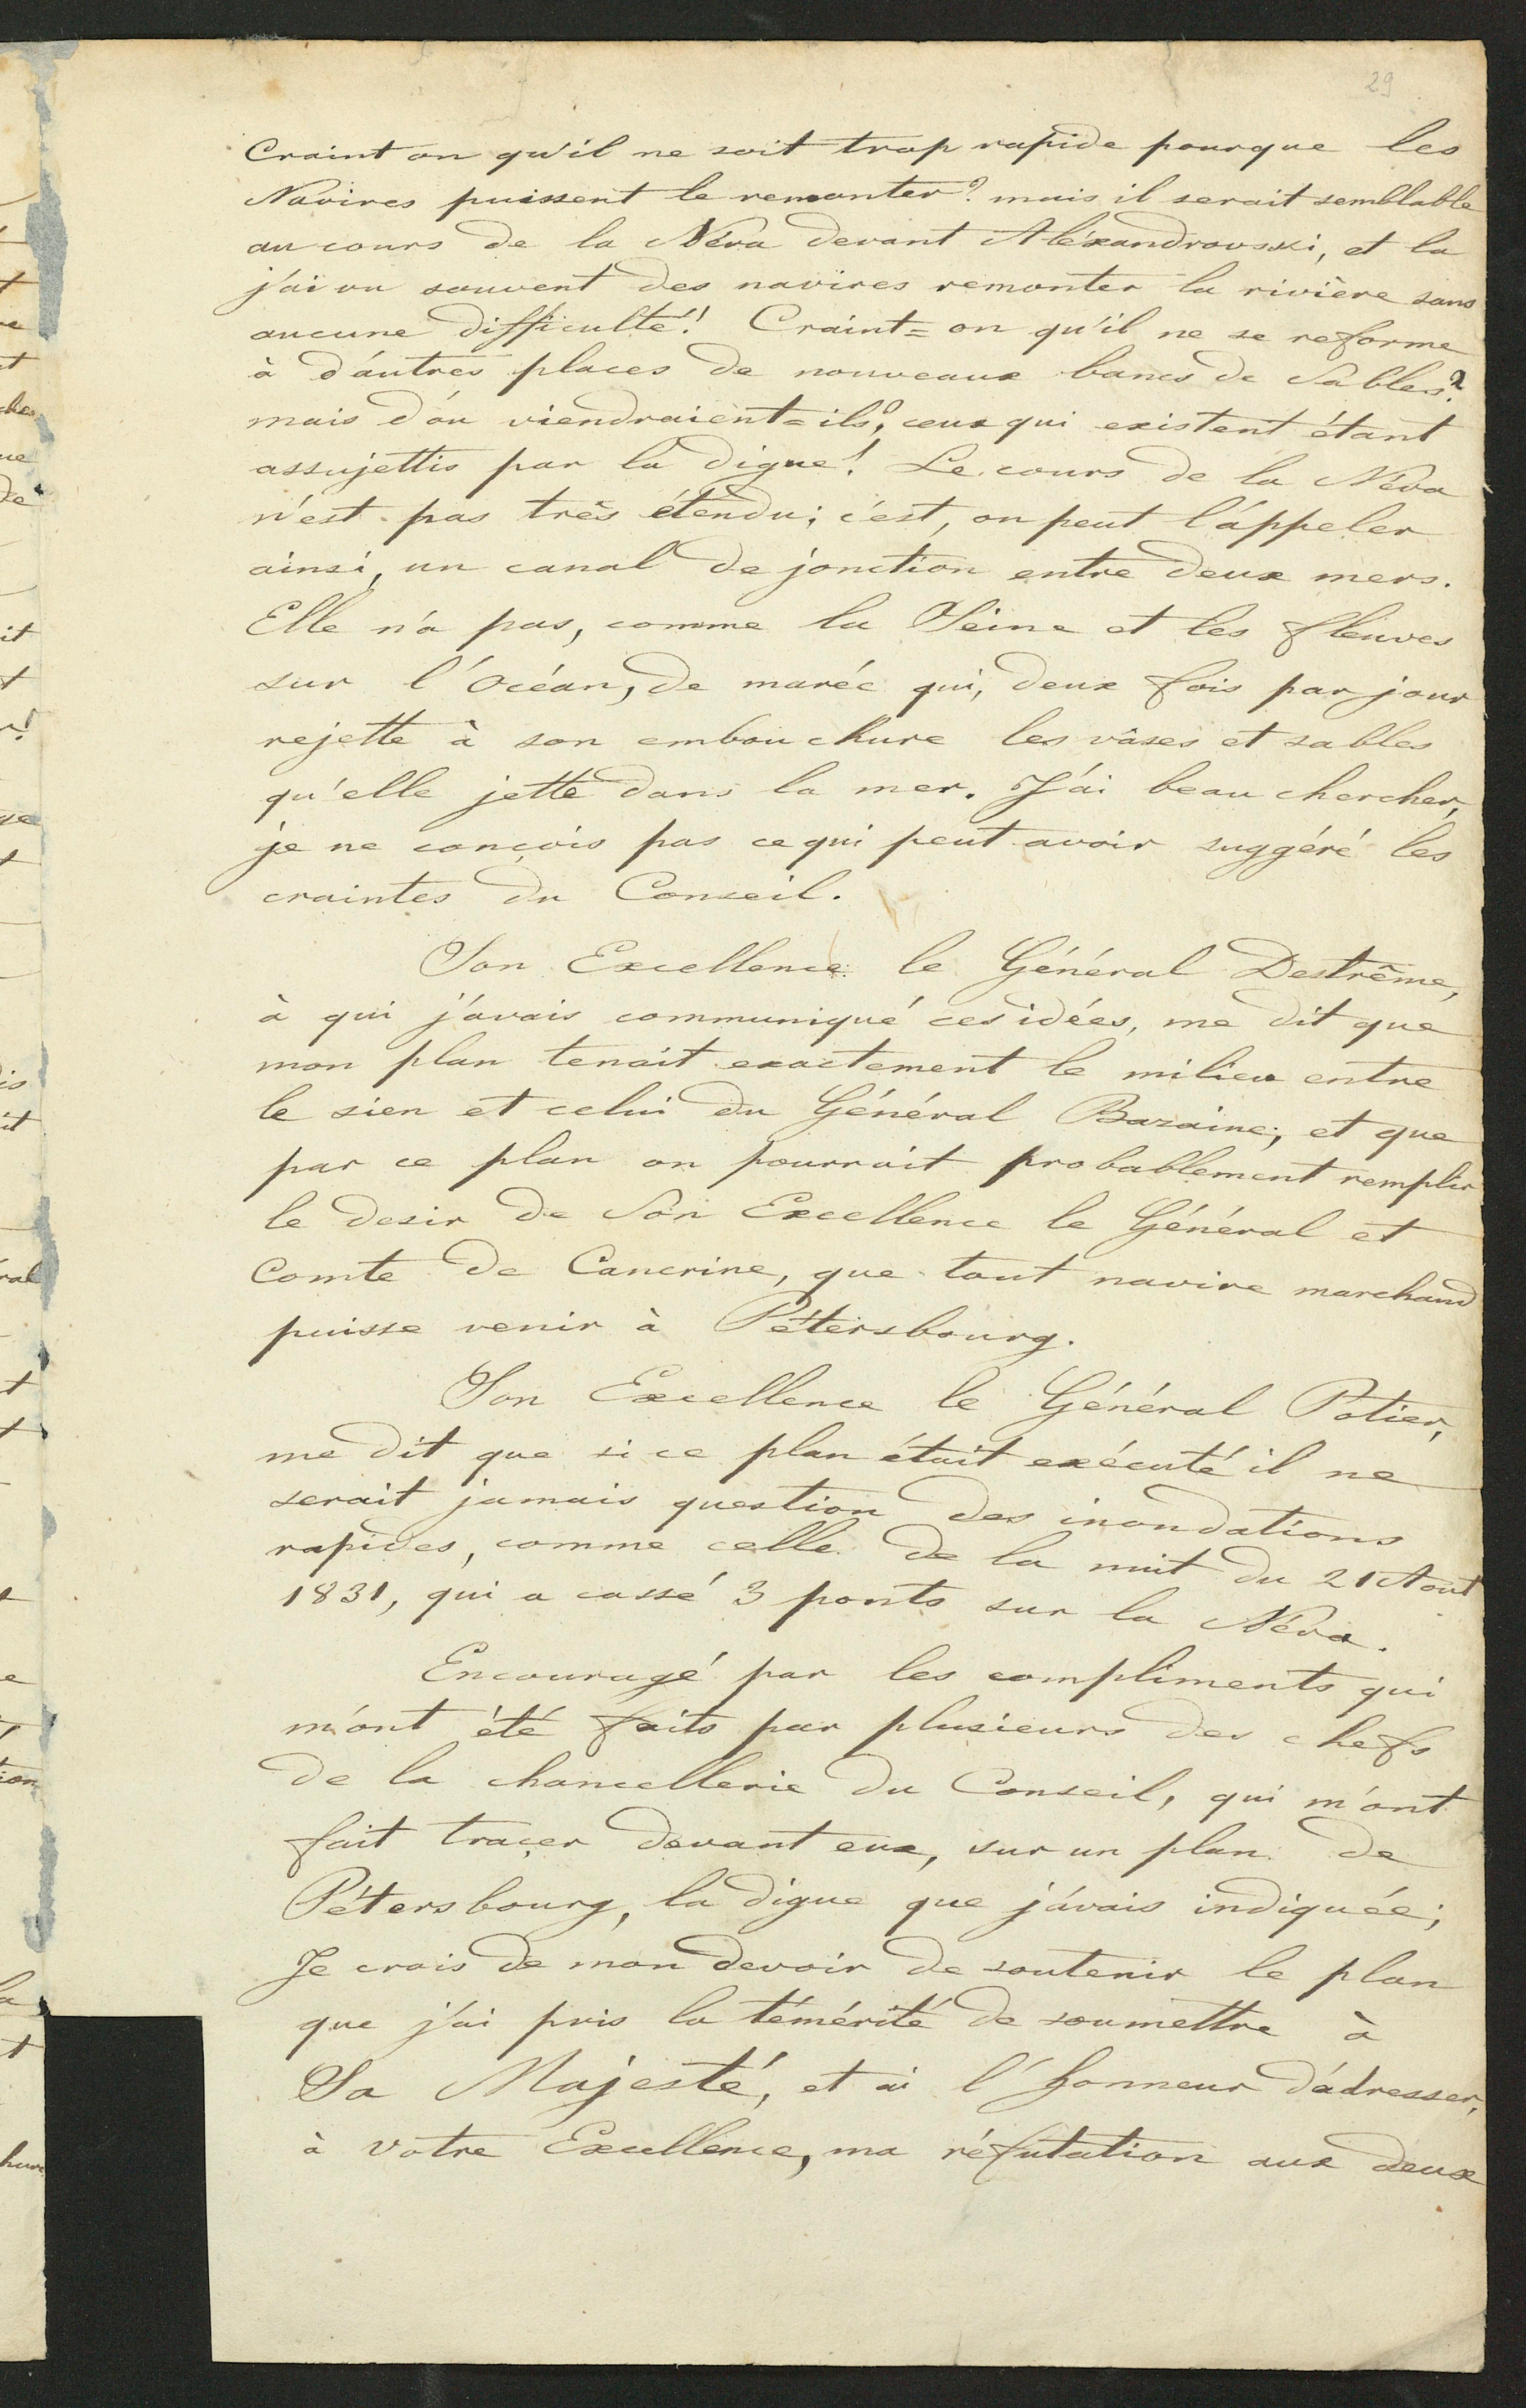 29
Craint on qu'il ne soit trop rapide pourque les
Navires puissent le remonter? mais il serait semblable
au cours de la Néva devant Aléxandrovski, et la
j'ai vu souvent des navires remonter la rivière sans
aucune difficulté! Craint=on qu'il ne se reforme
à d'autres places de nouveaux bancs de Sables?
mais d'ou viendraient=ils? ceux qui existent étant
assujettis par la digue! Le cours de la Néva
n'est pas très étendu; c'est, on peut l'áppeler
ainsi, un canal de jonction entre deux mers.
Elle n'a pas, comme la Seine et les fleuves
sur l'Océan, de marée qui, deux fois par jour
rejette à son embouchure les vâses et sables
qu'elle jette dans la mer. J'ai beau chercher,
je ne conçois pas ce qui peut avoir suggéré les
craintes du Conseil.
Son Excellence le Général Destrême,
à qui j'avais communiqué ces idées, me dit que
mon plan tenait exactement le milieu entre
le sien et celui du Général Bazaine; et que
par ce plan on pourrait probablement remplir
le desir de Son Excellence le Général et
Comte de Cancrine, que tout navire marchand
puisse venir à Pétersbourg.
Son Excellence le Général Potier,
me dit que si ce plan était exécuté il ne
serait jamais question des inondations
rapides, comme celle de la nuit du 21 Aout
1831, qui a cassé 3 ponts sur la Néva.
Encouragé par les compliments qui
m'ont été faits par plusieurs des chefs
de la chancellerie du Conseil, qui m'ont
fait traçer devant eux, sur un plan de
Pétersbourg, la digue que j'avais indiquée;
Je crois de mon devoir de soutenir le plan
que j'ai pris la témérité de soumettre à
Sa Majesté, et ai l'honneur d'adresser,
à votre Excellence, ma réfutation aux deux